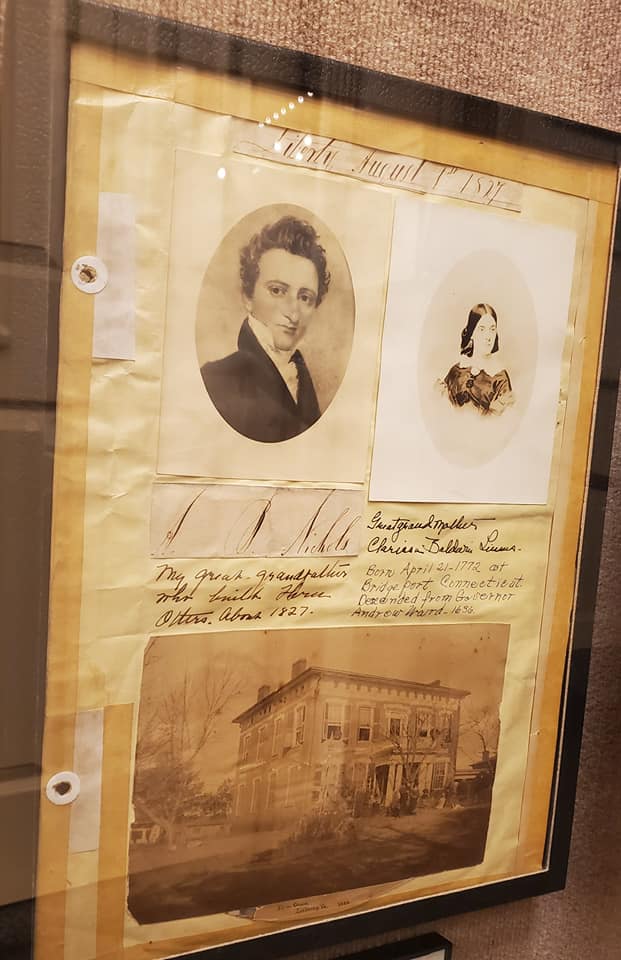 Liberty August 1st 1827
A. P. Nichols
My great-grandfather
who built Three
Otters. About 1827.
Great grand mother
Clarissa Baldwin
Born April 21-1772 at
Bridgeport Connecticut.
Descended from Governor
Andrew Ward-1636